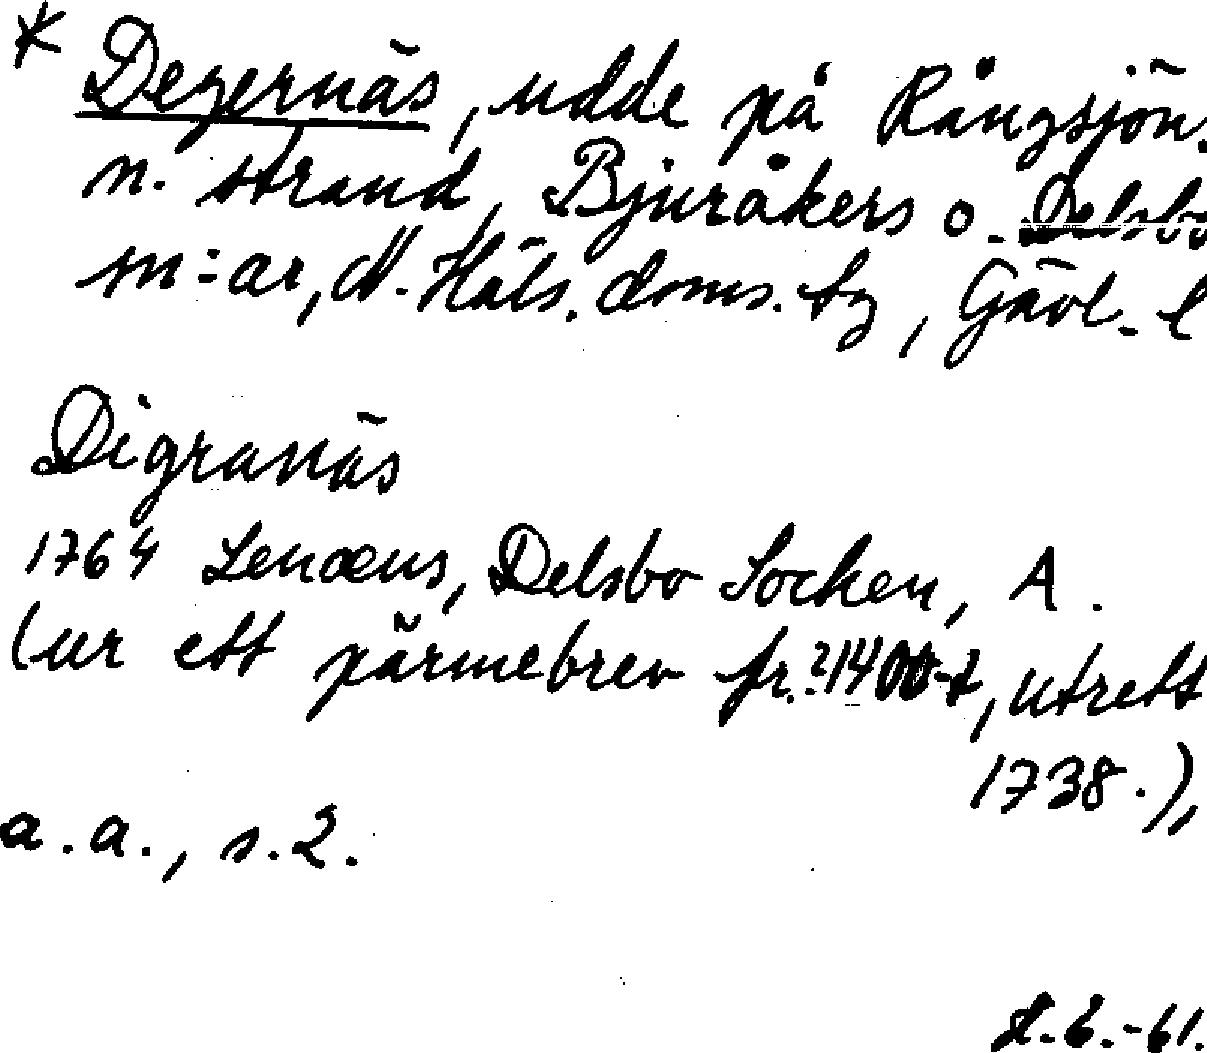 * Degernäs, udde på Rångsjön.
n. strand, Bjuråkers o. Delsbo
sn:ar, N. Häls. doms. tg, Gävl. l
Digranäs
1764 Lenæus, Delsbo Socken, A.
(ur ett pärmebrev fr. ?1400-t, utrett
1738.),
a.a., s. 2.
-61.